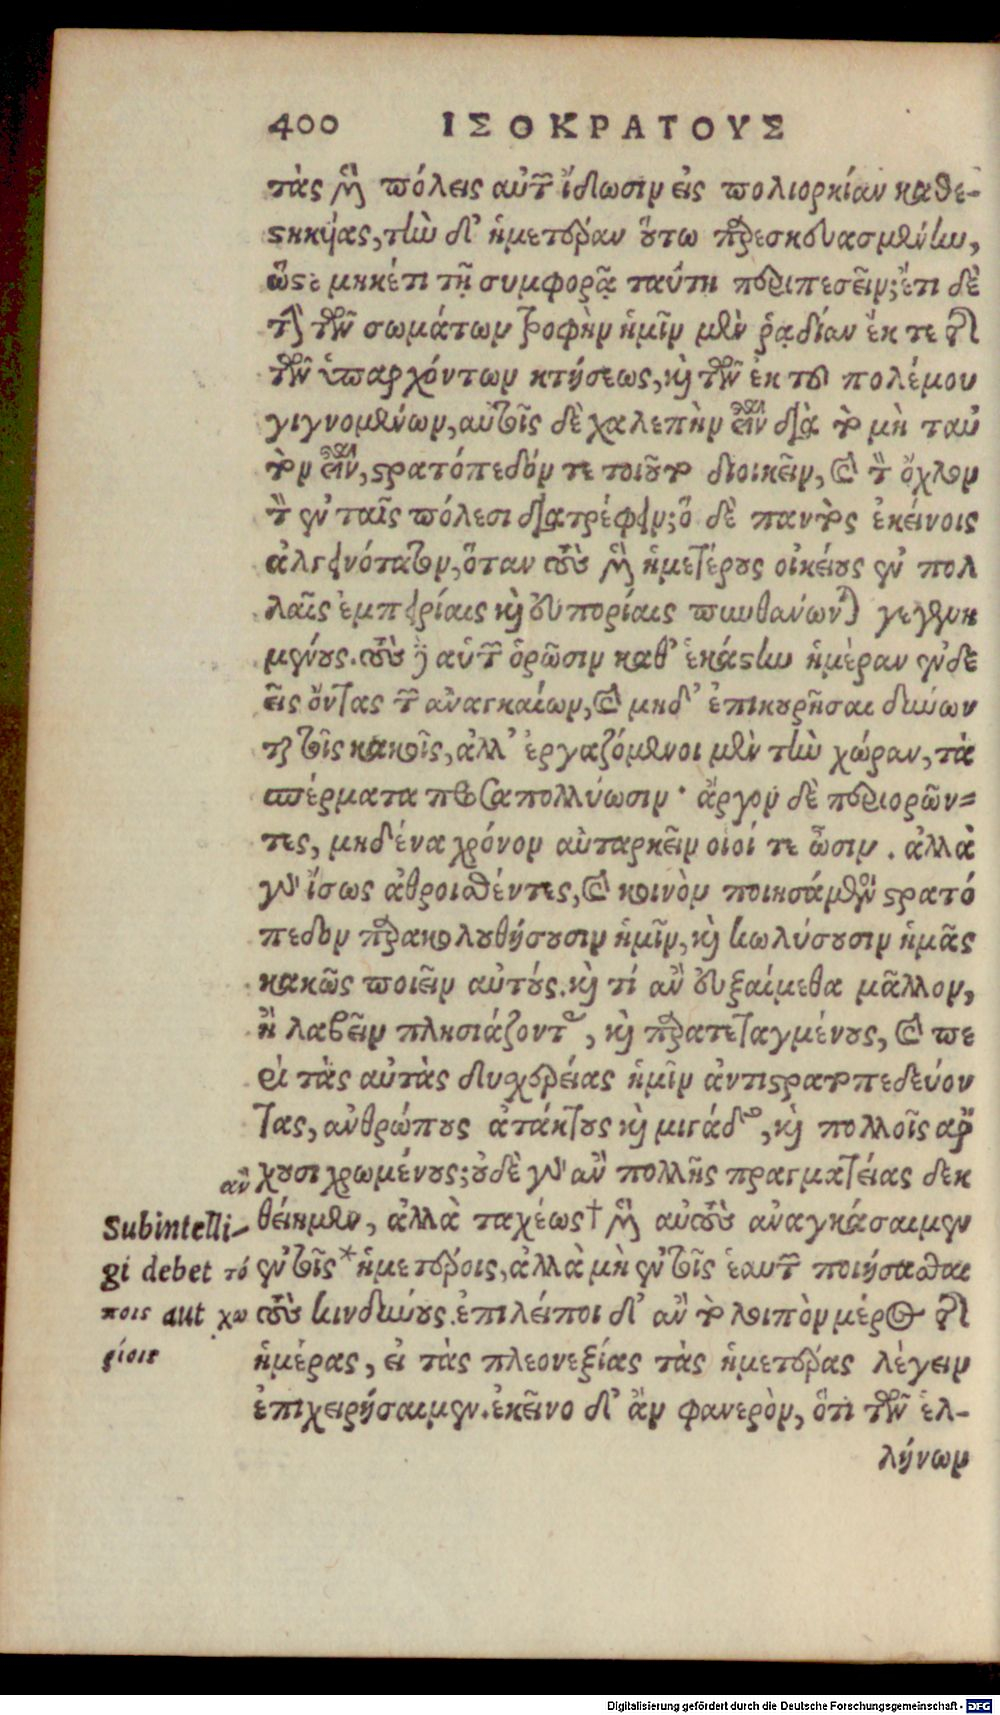 400 ΙΣΟΚΡΑΤΟΥΣ
τὰς δὲ πόλεις αὐτῶν ἴδωσιν εἰς πολιορκίαν καθε-
στηκυίας, τὴν δ' ἡμετέραν οὕτω παρεσκευασμένην,
ὥστε μηκέτι τῇ συμφορᾷ ταύτῃ περιπεσεῖν; ἔτι δὲ
τὴν τῶν σωμάτων τροφὴν ἡμῖν μὲν ῥᾳδίαν ἔκ τε τῆς
τῶν ὑπαρχόντων κτήσεως, καὶ τῶν ἐκ τοῦ πολέμου
γιγνομένων, αὐτοῖς δὲ χαλεπὴν εἶναι διὰ τὸ μὴ ταυ
τὸν εἶναι, στρατόπεδόν τε τοιοῦτο διοικεῖν, καὶ τὸν ὄχλον
τὸν ἐν ταῖς πόλεσι διατρέφειν; ὃ δὲ πάντως ἐκείνοις
ἀλγεινότατον, ὅταν τοὺς μὲν ἡμετέρους οἰκείους ἐν πολ
λαῖς ἐμπειρίαις καὶ εὐπορίαις πυνθάνωνται γεγενη
μένους. τοὺς δὲ αὑτῶν ὁρῶσιν καθ' ἑκάστην ἡμέραν ἐνδε
εῖς ὄντας τῶν ἀναγκαίων, καὶ μηδ' ἐπικουρῆσαι δύνων
ται τοῖς κακοῖς, ἀλλ' ἐργαζόμενοι μὲν τὴν χώραν, τὰ
σπέρματα προσαπολλύωσιν· ἄργον δὲ περιορῶν-
τες, μηδένα χρόνον αὐταρκεῖν οἷοί τε ὦσιν. ἀλλὰ
γὰρ ἴσως ἀθροισθέντες, καὶ κοινὸν ποιησάμενοι στρατό
πεδον παρακολουθήσουσιν ἡμῖν, καὶ κωλύσουσιν ἡμᾶς
κακῶς ποιεῖν αὐτούς. καὶ τί ἂν εὐξαίμεθα μᾶλλον,
ἢ λαβεῖν πλησιάζοντας, καὶ παρατεταγμένους, καὶ πε
ρὶ τὰς αὐτὰς δυσχερείας ἡμῖν ἀντιστρατοπεδεύον
τας, ἀνθρώπους ἀτάκτους καὶ μιγάδας, καὶ πολλοῖς ἄρ
χουσι χρωμένους; οὐδὲ γὰρ ἂν πολλῆς πραγματείας δεη
θείημεν, ἀλλὰ ταχέως † ἂν αὐτοὺς ἀναγκάσαιμεν
ἐν τοῖς * ἡμετέροις, ἀλλὰ μὴ ἐν τοῖς ἑαυτῶν ποιήσασθαι
τοὺς κινδύνους. ἐπιλείποι δ' ἂν τὸ λοιπὸν μέρος τῆς
ἡμέρας, εἰ τὰς πλεονεξίας τὰς ἡμετέρας λέγειν
ἐπιχειρήσαιμεν. ἐκεῖνο δ' ἂν φανερὸν, ὅτι τῶν ἑλ-
λήνων
ἂν
Subintelli-
gi debet τό
ποις aut χω
ρίοις
Digitalisierung gefördert durch die Deutsche Forschungsgemeinschaft - DFG